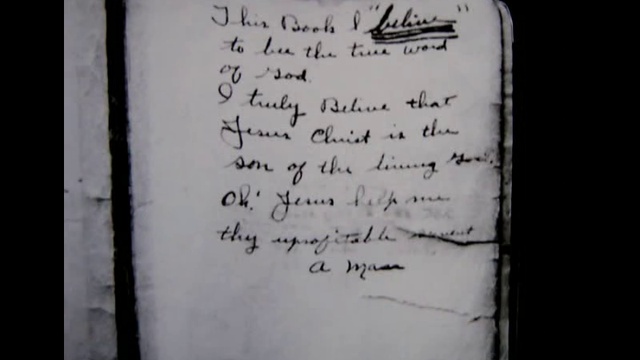 This Book I "believe"
to bee the true word
of God.
I truly Believe that
Jesus Christ is the
son of the living God.
Oh! Jesus help me
thy uprofitable servent
A Man